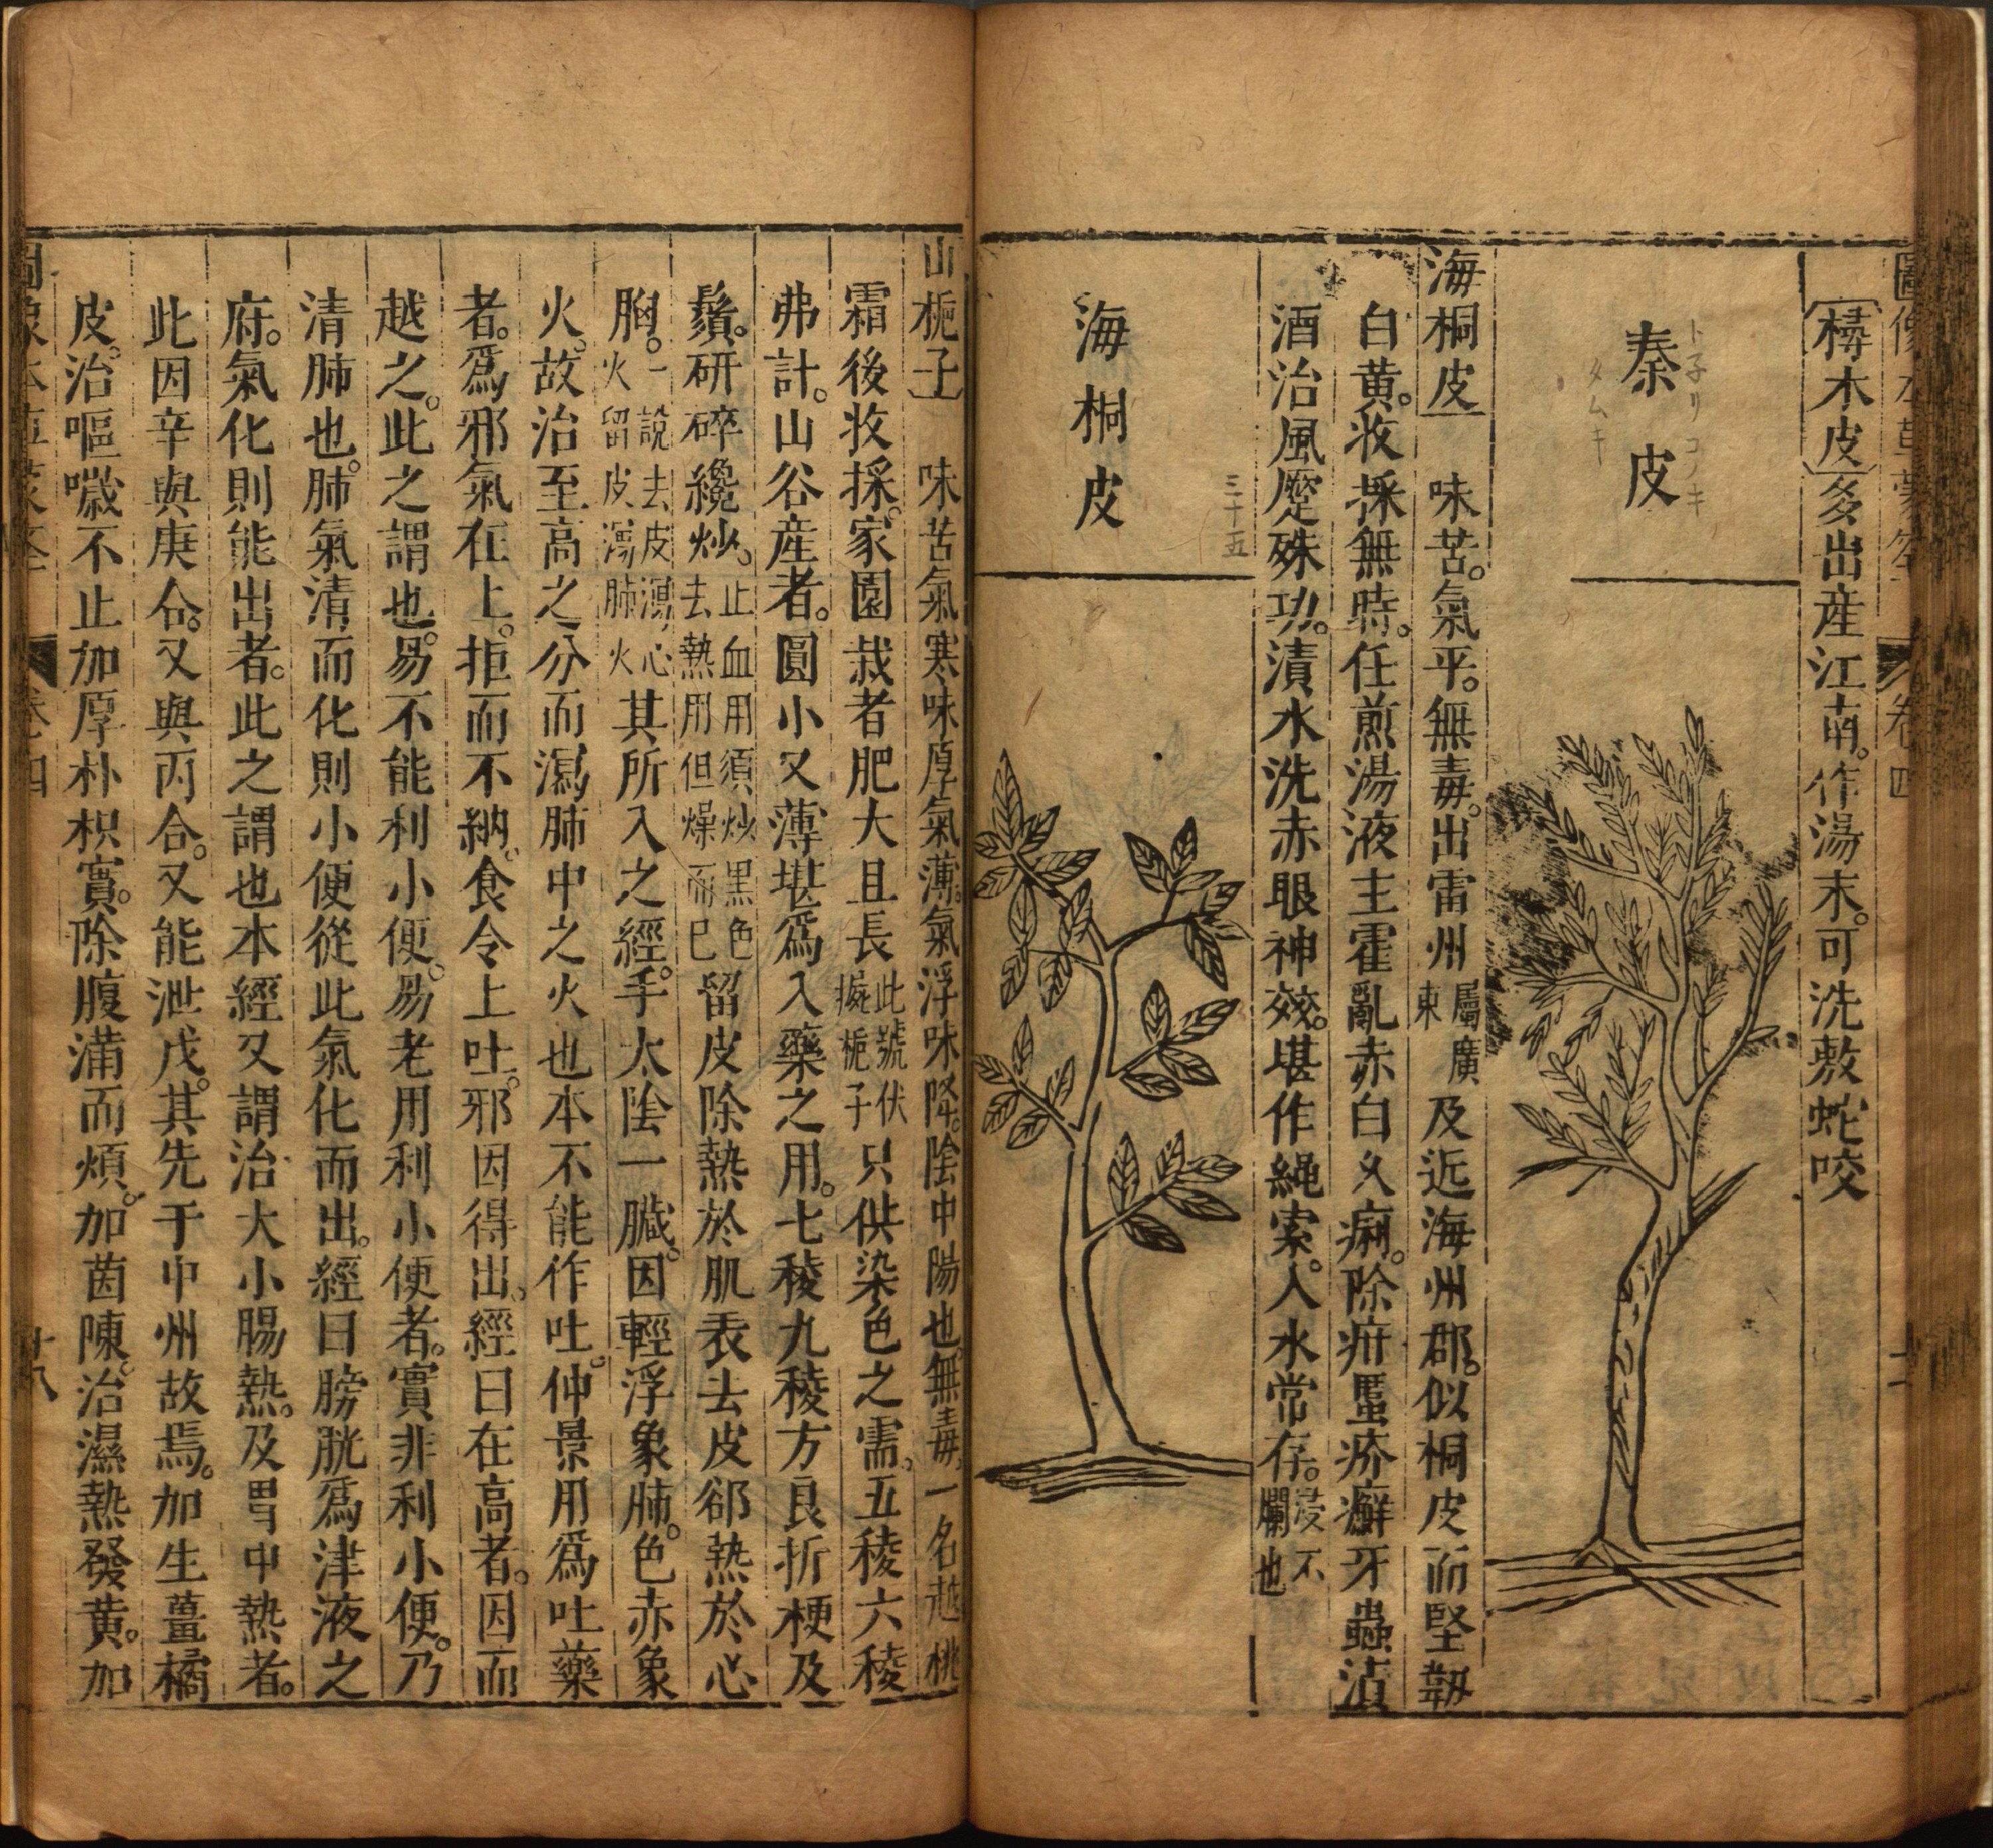 圖像本草蒙筌 卷四
樳木皮多出産江南。作湯末。可洗敷蛇咬
秦皮
トネリコノキ
タムキ
海桐皮 味苦。氣平。無毒。出雷州屬廣東及近海州郡。似桐皮而堅韌
白黄。收採無時。任煎湯液主霍亂赤白久痢。除疳䘌疥癬牙蟲漬
酒治風蹷殊功。漬水洗赤眼神效。堪作繩索。入水常存。浸不爛也
三十五
海桐皮
山梔子 味苦氣寒味厚氣薄。氣浮味降。陰中陽也。無毒。一名越桃
霜後收採。家園栽者肥大且長此號伏㞈梔子只供染色之需。五稜六稜
弗計。山谷産者。圓小又薄堪爲入藥之用。七稜九稜方良折梗及
鬚。研碎纔炒。止血用須炒黒色去熱用但燥而已留皮除熱於肌表去皮郤熱於心
胸。一說去皮瀉心火留皮瀉肺火其所入之經。手太陰一臟。因輕浮象肺。色赤象
火。故治至高之分而瀉肺中之火也本不能作吐。仲景用爲吐藥
者。爲邪氣在上。拒而不納。食令上吐。邪因得出。經曰在高者。因而
越之。此之謂也。易不能利小便。易老用利小便者。實非利小便。乃
清肺也。肺氣清而化則小便從此氣化而出。經曰膀胱爲津液之
府。氣化則能出者。此之謂也本經又謂治大小腸熱。及胃中熱者。
此因辛與庚合。又與丙合。又能泄戊。其先于中州故焉。加生薑橘
皮。治嘔噦不止加厚朴枳實。除腹滿而煩。加茵陳。治濕熱發黄。加
圖像本草蒙筌 卷四 十八